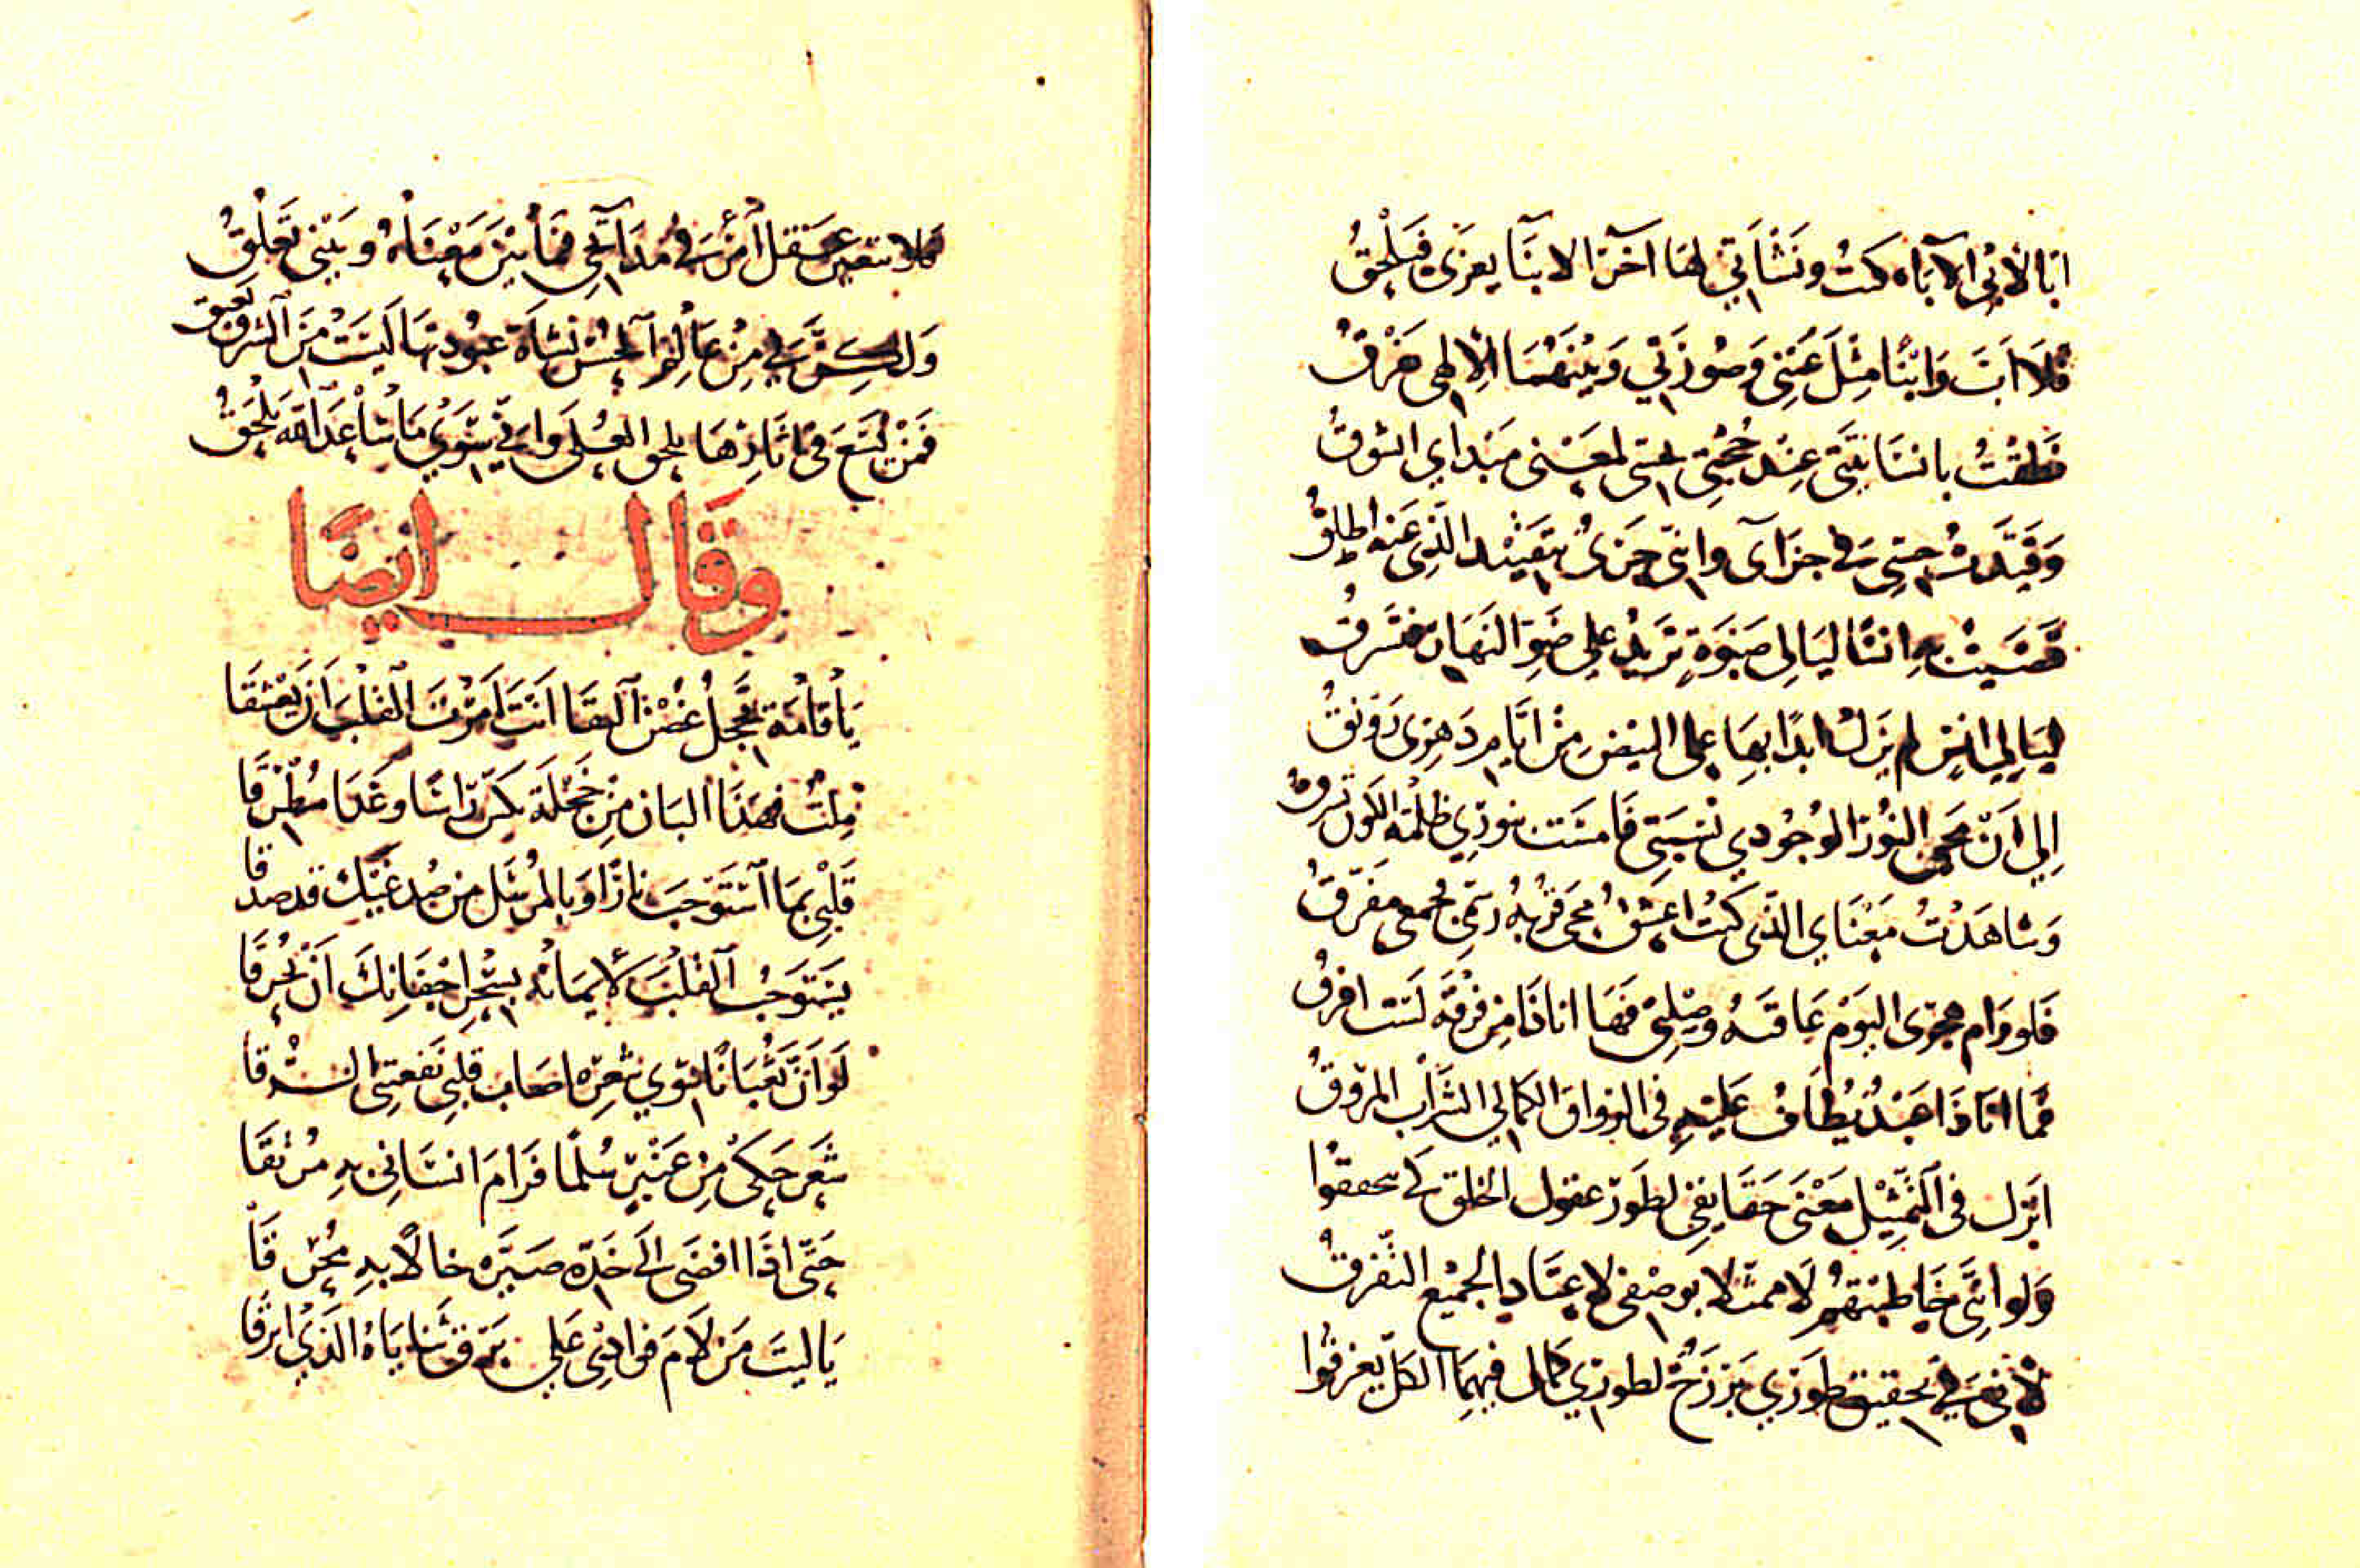 انا لابي الآباء كنت ونشاتي لها آخر الابنا يعزى فيلحق
فلا اب وابنا مثل عيني وصورتي وبينهما الالهي
بانسانيتي عند حجتي لمعنى مبداي الشوق
وقيدت حبي في جزآي وانني حر بتقييد الذي عنه اطلاق
انسًا ليالي صبوة تزيد على ضوء النهار فتشرق
ليالي انس لم يزل ابدا بها على البيض من ايام دهري رونق
الى ان محى النور الوجودي نسبتي فامست بنوري ظلمة الكون تشرق
وشاهدت معناي الذي كنت اعشق رسمي مجمعي مفرق
فلو رام هجري اليوم عاقه وصلتي فها انا ذا من فرقة لست افرق
فما انا ذا عبد يطاف عليه في الرواق الكمالي الشراب المروق
انزل في التمثيل معنى حقايقي لطور عقول الخلق كي يتحققوا
ولو انني خاطبتهم لا ممثلا بوصفي لاعتاد الجميع التفرق
لاني في تحقيق طوري برزخ لطوري كمال فيهما الكل يغرقوا
فلا تتعبن عقل امرئ في مدائحي فما بين معناه وبيني تعلق
ولكن لي من عالم الحس نشاة عبوديتها ليست من الشرق تعبق
فمن يتبع في اثارها يلحق العلى واني سوى ما شا عند الله يلحق
وقال ايضًا
يا قامة تخجل غصن النقا انت امرت القلب ان يعشقا
ملت فهذا البان من خجلة نكس راسا وغدا مطرقا
قلبي بما استوجب نارا وبالمرسل من صدغيك قد صدقا
يستوجب القلب لايمانه بسحر اجفانك ان يحرقا
لو ان ثعبانا سوى شعره اصاب قلبي نفعتني الرقا
شعر حكى من عنبر سلما فرام انساني به مرتقا
حتى اذا افضى الى خده صيره خالا به محرقا
يا ليت من لام فؤادي على برق ثناياه الذي ابرقا